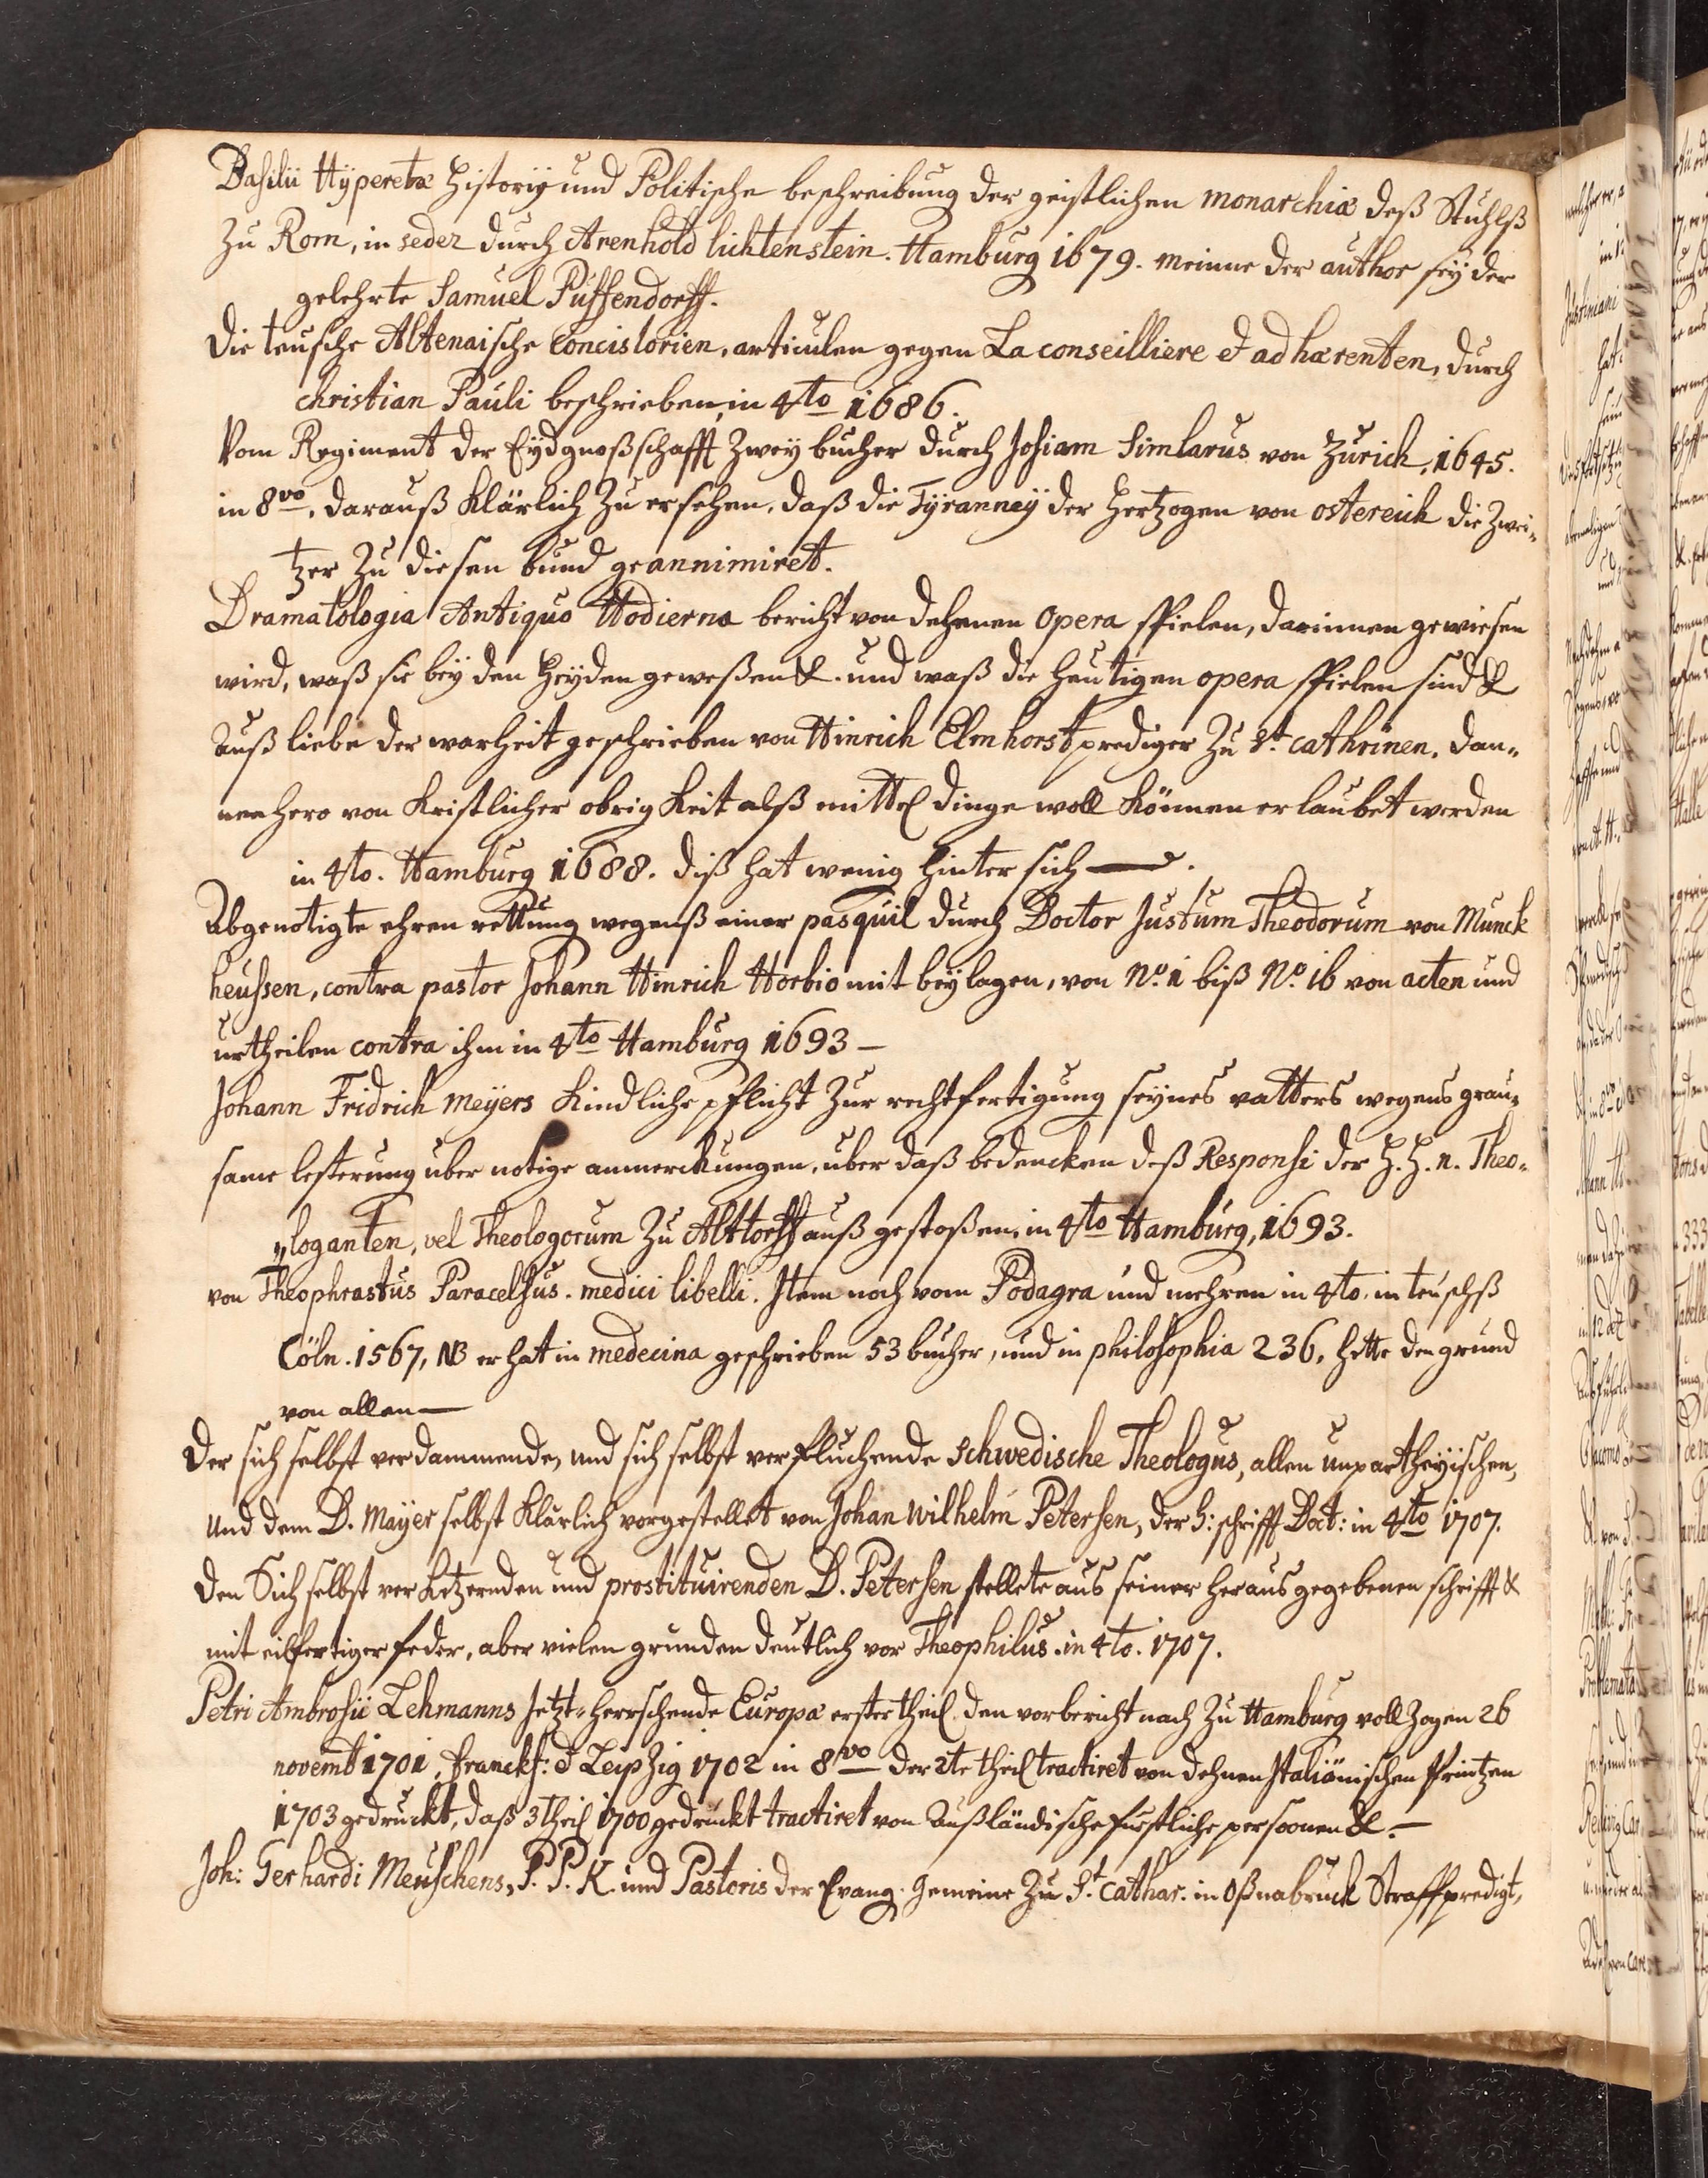 Basilii Hÿperetæ Historij und Politische beschreibung der geistlichen monarchiæ deß Stuhlß
zu Rom, in sedez durch Arenhold lichtenstein. Hamburg 1679. meinne der author seÿ der
gelehrte Samuel Puffendorff.
Die teusche Altenaische Concistorien, articulen gegen La conseilliere et adhærenten, durch
christian Pauli beschrieben, in 4to 1686.
Vom Regiment der Eydgnoßschafft zweÿ bucher durch Josiam Simlarus von Zurich, 1645.
in 8vo. darauß klärlich zu ersehen, daß die Tÿranneÿ der Hertzogen von ostereich die Zwei-
tzer zu diesen bund geannimiret.
Dramatologia Antiquo Hodierna bericht von dehenen opera spielen, darinnen gewiesen
wird, waß sie beÿ den Heÿden geweßen &. und waß die heutigen opera spielen sind &
auß liebe der warheit geschrieben von Hinrich Elmhorst prediger zu St. cathrinen. dan-
nenhero von Kristlicher obrigkeit alß mittel dinge woll können erlaubet werden
in 4to. Hamburg 1688. diß hat wenig hinter sich —.
Abgenotigte ehren rettung wegenß einer pasquil durch Doctor Justum Theodorum von Munck
heussen, contra pastor Johann Hinrich Horbio mit beÿlagen, von No. 1 biß No. 16 von acten und
urtheilen contra ihm in 4to Hamburg 1693 —
Johann Fridrich meÿers Kindliche pflicht zur rechtfertigung seÿnes vatters wegens grau-
same lesterung uber notige anmerckungen, uber daß bedencken deß Responsi der H. H. n. Theo-
loganten, vel Theologorum zu Alttorff auß gestoßen, in 4to Hamburg, 1693.
von Theophrastus Paracelsus. medici libelli. Item noch vom Podagra und mehren in 4to. in teuschß
Cöln. 1567, NB er hat in medecina geschrieben 53 bucher, und in philosophia 236, hette den grund
von allen —
Der sich selbst verdammende, und sich selbst verfluchende schwedische Theologus, allen unpartheÿischen,
und dem D. Maÿer selbst klärlich vorgestellet von Johan wilhelm Petersen, der H: schrifft Doct: in 4to 1707.
den Sich selbst verketzernden und prostituirenden D. Petersen stellete aus seiner heraus gegebenen schrifft &
mit eilfertiger feder, aber vielen grunden deutlich vor Theophilus. in 4to. 1707.
Petri Ambrosii Lehmanns Jetzt-herrschende Europa erster theil den vorbericht nach zu Hamburg vollzogen 26
novemb 1701, franckf: et Leipzig 1702 in 8vo der 2te theil tractiret von dehnen Italiänischen Printzen
1703 gedruckt, daß 3 theil 1700 gedruckt tractiret von außländische furstliche persoonen &. —
Joh: Gerhardi Meuschens, P. P. K. und Pastoris der Evang. Gemeine zu St. Cathar. in Oßnabruck Straffpredigt,